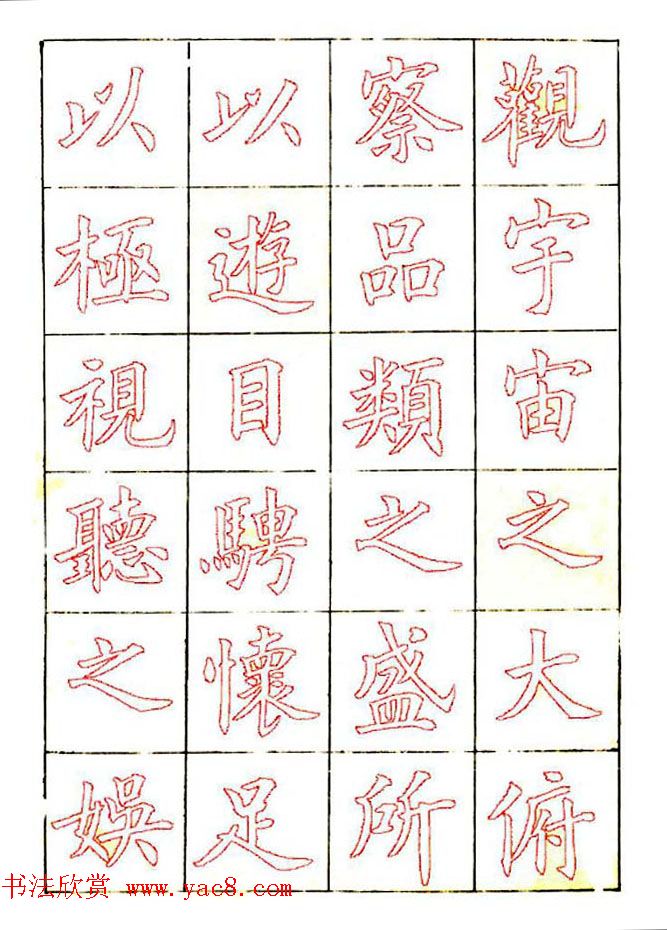 觀宇宙之大俯
察品類之盛所
以遊目騁懷足
以極視聽之娛
书法欣赏 www.yac8.com